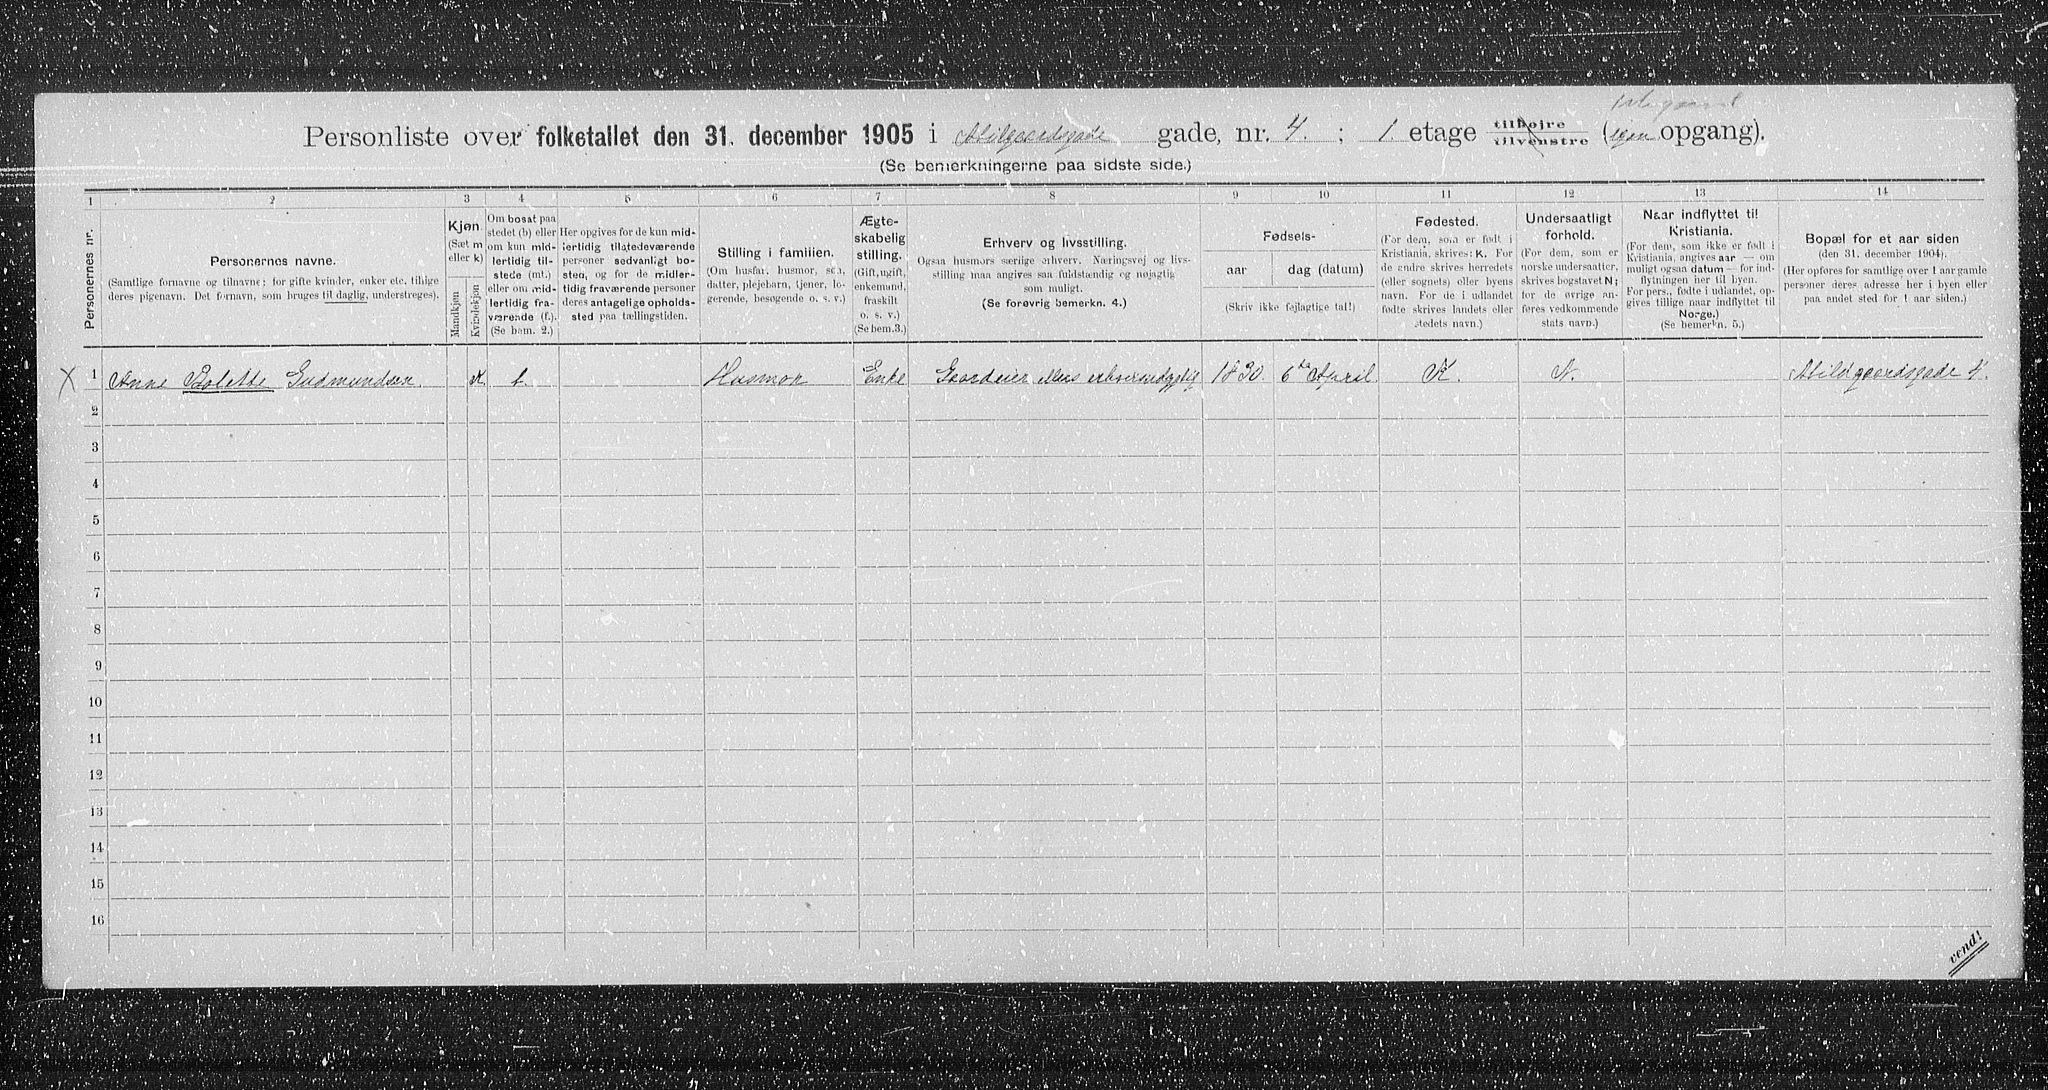 Personliste over folketallet den 31. december 1905 i Abilgaardsgade gade, nr. 4. ; 1. etage tilhøjre tilvenstre (egen opgang).
(Se bemerkningerne paa sidste side.)
1 2 3 4 5 6 7 8 9 10 11 12 13 14
Personernes nr.
Personernes navne.
(Samtlige fornavne og tilnavne; for gifte kvinder, enker etc. tillige
deres pigenavn. Det fornavn, som bruges til daglig, understreges).
Kjøn
(Sæt m
eller k)
Mandkjøn
Kvindekjøn
Om bosat paa
stedet (b) eller
om kun mid-
lertidig til-
stede (mt.)
eller om mid-
lertidig fra-
værende (f.).
(Se bem. 2.)
Her opgives for de kun mid-
lertidig tilstedeværende
personer sædvanligt bo-
sted, og for de midler-
tidig fraværende personer
deres antagelige opholds-
sted paa tællingstiden.
Stilling i familien.
(Om husfar, husmor, søn,
datter, plejebarn, tjener, lo-
gerende, besøgende o. s. v.)
Ægte-
skabelig
stilling.
(Gift, ugift,
enkemand,
fraskilt
o. s. v.)
(Se bem. 3.)
Erhverv og livsstilling.
Ogsaa husmors særlige erhverv. Næringsvej og livs-
stilling maa angives saa fuldstændig og nøjagtig
som muligt.
(Se forøvrig bemerkn. 4.)
Fødsels-
aar dag (datum)
(Skriv ikke fejlagtige tal!)
Fødested.
(For dem, som er født i
Kristiania, skrives: K. For
de andre skrives herredets
(eller sognets) eller byens
navn. For de i udlandet
fødte skrives landets eller
stedets navn.)
Undersaatligt
forhold.
(For dem, som er
norske undersaatter,
skrives bogstavet N;
for de øvrige an-
føres vedkommende
stats navn.)
Naar indflyttet til
Kristiania.
(For dem, som ikke er født i
Kristiania, angives aar — om
muligt ogsaa datum — for ind-
flytningen her til byen.
For pers., fødte i udlandet, op-
gives tillige naar indflyttet til
Norge.)
(Se bemerkn. 5.)
Bopæl for et aar siden
(den 31. december 1904).
(Her opføres for samtlige over 1 aar gamle
personer deres adresse her i byen eller
paa andet sted for 1 aar siden.)
X 1 Anne Bolette Gudmundsen k b. Husmor Enke Gaardeier 1830. 6te April K. N. Abildgaardsgade 4.
2
3
4
5
6
7
8
9
10
11
12
13
14
15
16
vend!